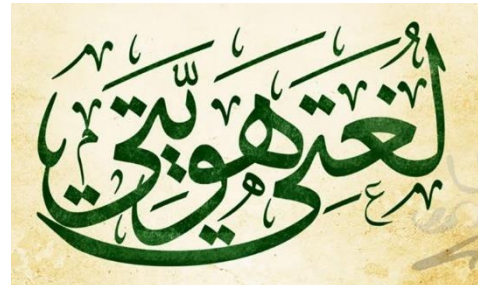 لُغَتِي هويَّتي